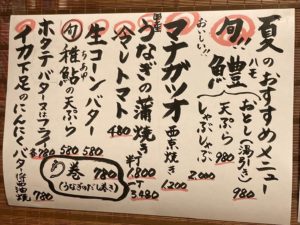 夏のおすすめメニュー
旬!! 鱧 ハモ おとし(湯引き) 980
天ぷら 980
しゃぶしゃぶ 2,000
おいしい!!
マナガツオ 西京焼き 1,200
国産 うなぎの蒲焼き 半丁 1,800 一丁 3,480
冷しトマト 480
生コーンバター 580
旬 稚鮎の天ぷら 580
ちあゆ
ホタテバター又はフライ 780
イカゲソ足のにんにくバター醤油焼 780
う巻 780
(うなぎのだし巻き)